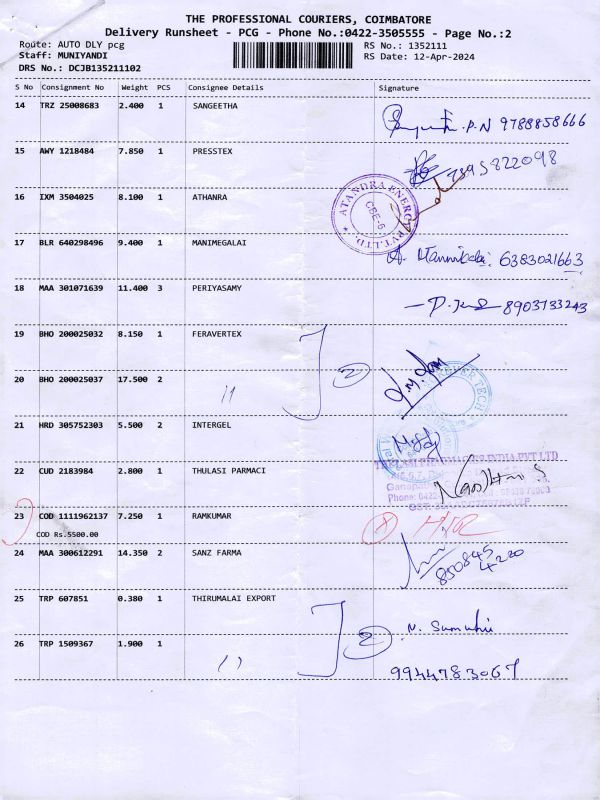 THE PROFESSIONAL COURIERS, COIMBATORE
Delivery Runsheet - PCG - Phone No.:0422-3505555 - Page No.:2
Route: AUTO DLY pcg RS No.: 1352111
Staff: MUNIYANDI RS Date: 12-Apr-2024
DRS No.: DCJB135211102
S No Consignment No Weight PCS Consignee Details Signature
14 TRZ 25008683 2.400 1 SANGEETHA
P.N 9788858666
15 AWY 1218484 7.850 1 PRESSTEX
7895822098
16 IXM 3504025 8.100 1 ATHANRA
ATANDRA ENERGY PVT.LTD. ★
CBE-6
17 BLR 640298496 9.400 1 MANIMEGALAI
6383021663
18 MAA 301071639 11.400 3 PERIYASAMY
8903733243
19 BHO 200025032 8.150 1 FERAVERTEX
2
20 BHO 200025037 17.500 2 "
21 HRD 305752303 5.500 2 INTERGEL
22 CUD 2183984 2.800 1 THULASI PHARMACI
23 COD 1111962137 7.250 1 RAMKUMAR
COD Rs.5500.00
24 MAA 300612291 14.350 2 SANZ FARMA
850845
4220
25 TRP 607851 0.380 1 THIRUMALAI EXPORT
2
26 TRP 1509367 1.900 1 "
9944783067